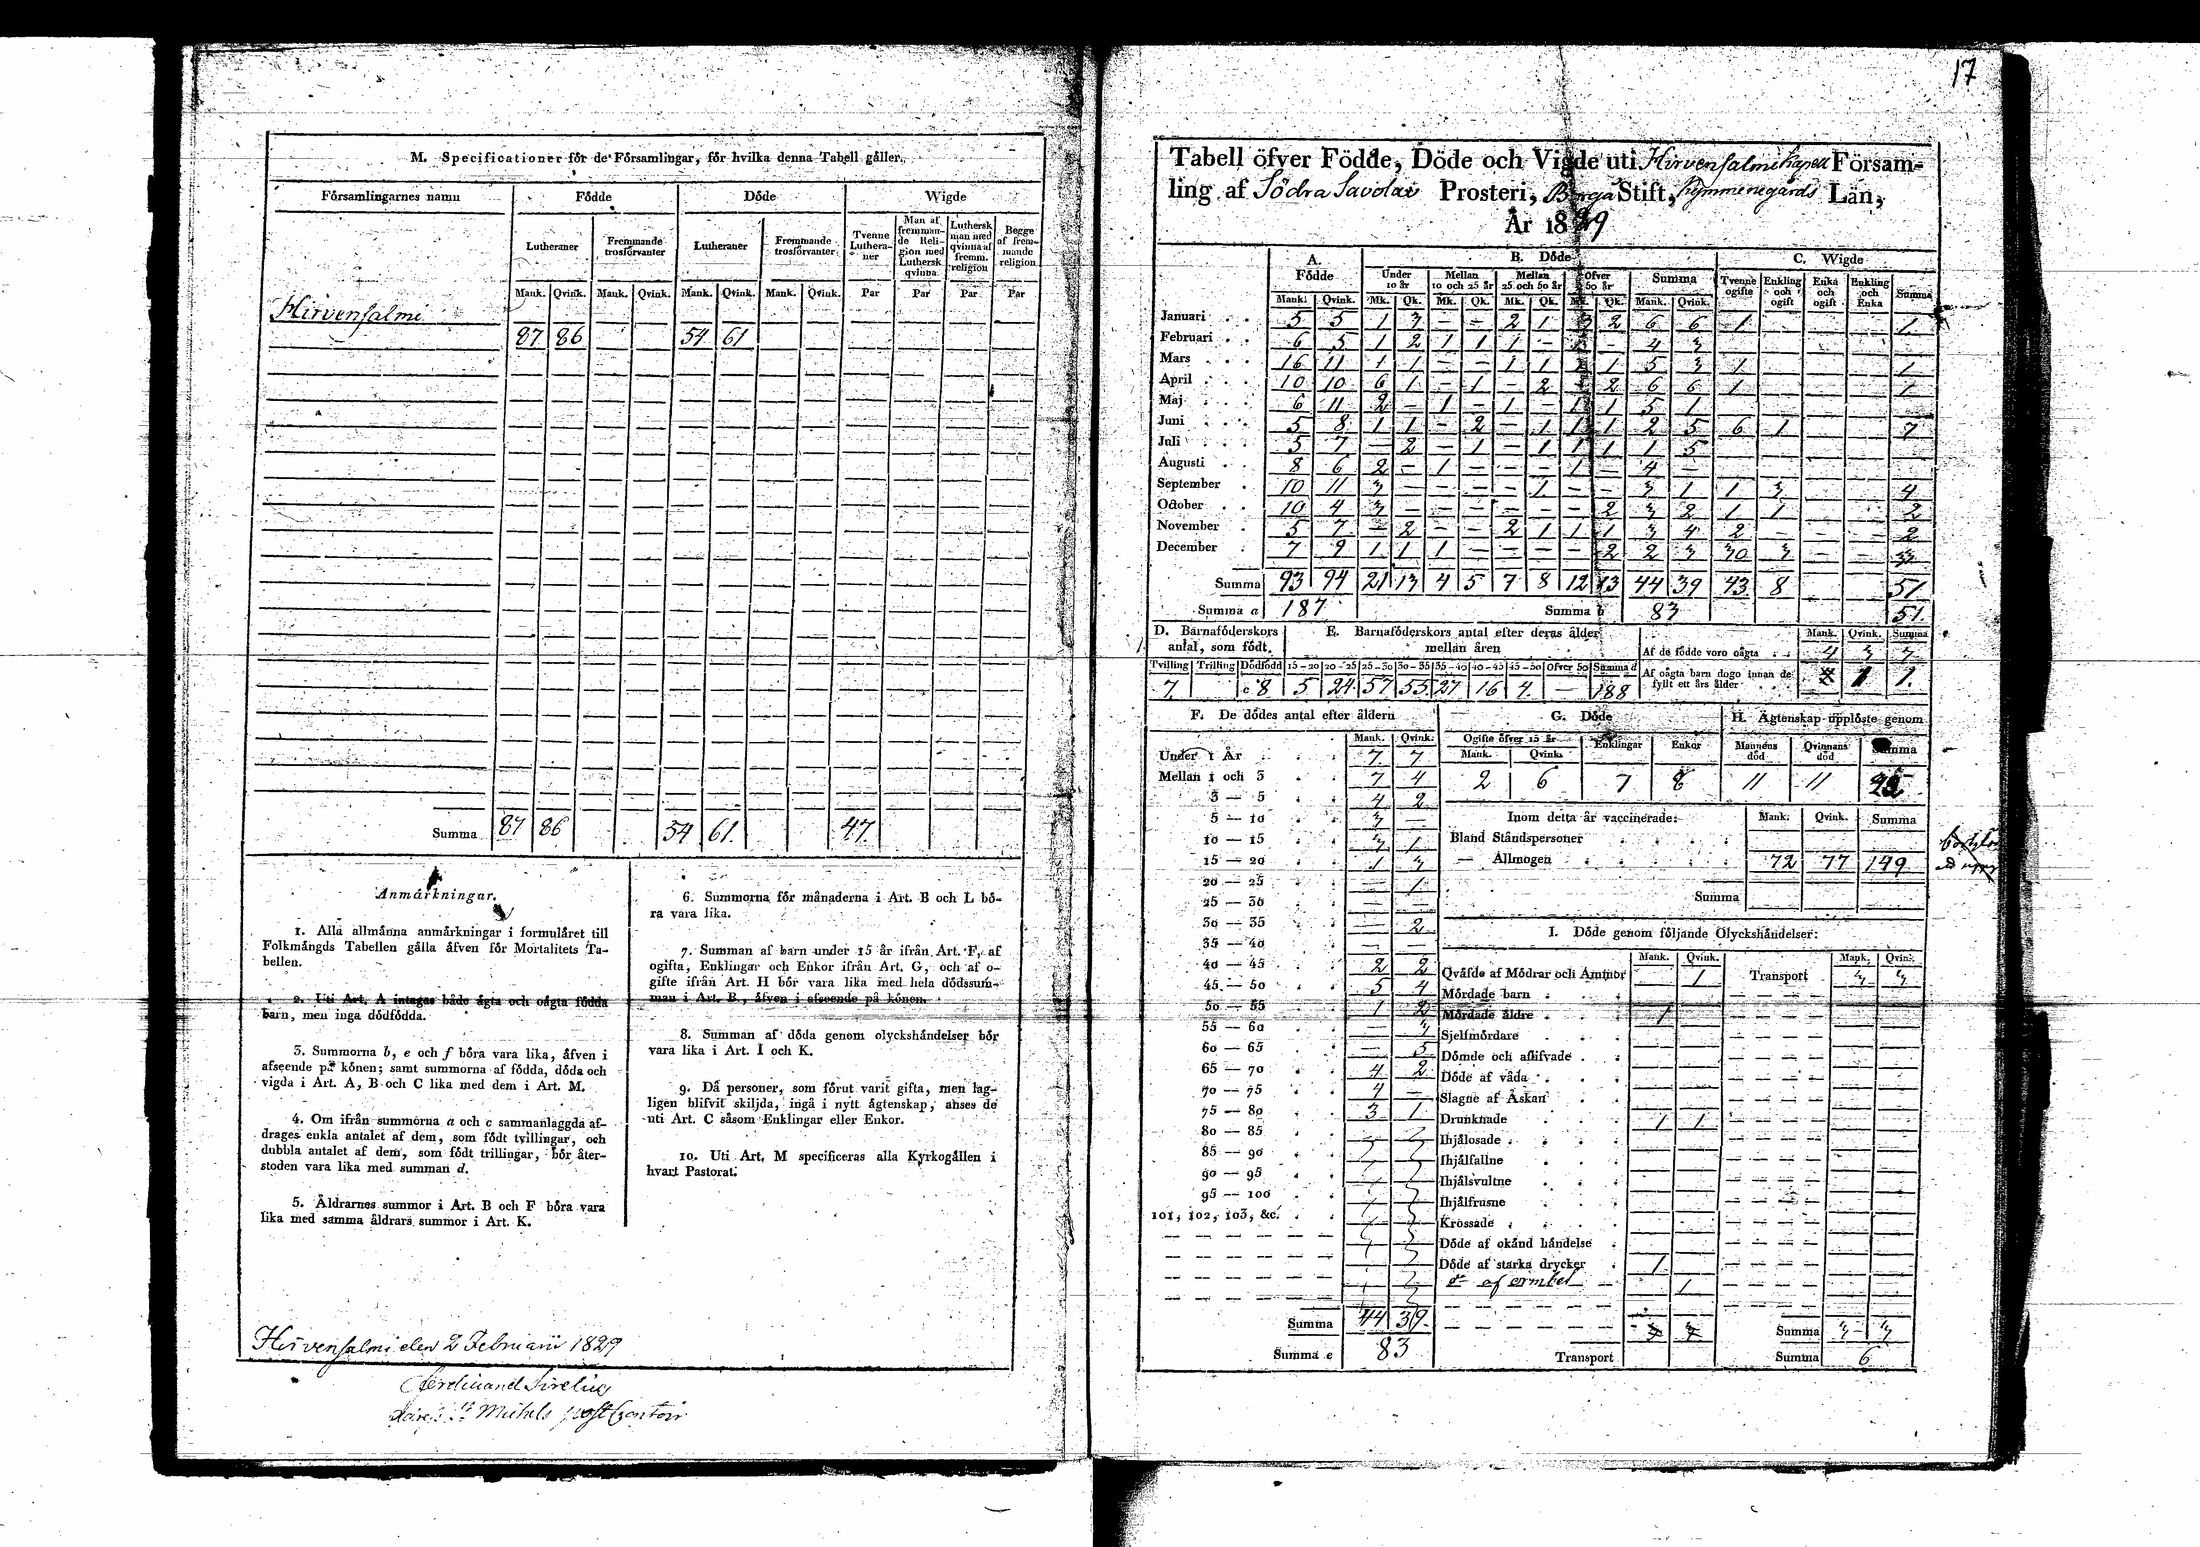 M. Specificationer för de Församlingar, för hvilka denna Tabell gäller.
Församlingarnes namn Födde Döde Wigde
Lutheraner Fremmande trosförvanter Lutheraner Fremmande trosförvanter Tvenne Lutheraner Man af fremmande Religion med Luthersk qvinna Luthersk man med qvinna af fremm. religion Begge af fremmande religion
Mank. Qvink. Mank. Qvink. Mank. Qvink. Mank. Qvink. Par Par Par Par
Hirvensalmi
87 86 54 61
Summa 87 86 54 61. 47.
Anmärkningar.
1. Alla allmänna anmärkningar i formuläret till
Folkmängds Tabellen gälla äfven för Mortalitets Ta-
bellen.
2. Uti Art. A intagas både ägta och oägta födda
barn, men inga dödfödda.
3. Summorna b, e och f böra vara lika, äfven i
afseende på könen; samt summorna af födda, döda och
vigda i Art. A, B och C lika med dem i Art. M.
4. Om ifrån summorna a och c sammanlaggda af-
drages enkla antalet af dem, som födt tvillingar, och
dubbla antalet af dem, som födt trillingar, bör åter-
stoden vara lika med summan d.
5. Åldrarnes summor i Art. B och F böra vara
lika med samma åldrars summor i Art. K.
6. Summorna för månaderna i Art. B och L bö-
ra vara lika.
7. Summan af barn under 15 år ifrån Art. F, af
ogifta, Enklingar och Enkor ifrån Art. G, och af o-
gifte ifrån Art. H bör vara lika med hela dödssum-
man i Art. B, äfven i afseende på könen.
8. Summan af döda genom olyckshändelser bör
vara lika i Art. I och K.
9. Då personer, som förut varit gifta, men lag-
ligen blifvit skiljda, ingå i nytt ägtenskap, anses de
uti Art. C såsom Enklingar eller Enkor.
10. Uti Art. M specificeras alla Kyrkogällen i
hvart Pastorat.
Hirvensalmi den 2 Februarii 1829
Ferdinand Sirelius
St Michels post Contoir
17
Tabell öfver Födde, Döde och Vigde uti Hirvensalmi kapell Försam-
ling af Södra Savolax Prosteri, Borgå Stift, Kymmenegårds Län,
År 1829
A. Födde B. Döde C. Wigde
Under 10 år Mellan 10 och 25 år Mellan 25 och 50 år Öfver 50 år Summa Tvenne ogifte Enkling och ogift Enka och ogift Enkling och Enka Summa
Mank. Qvink. Mk. Qk. Mk. Qk. Mk. Qk. Mk. Qk. Mank. Qvink.
Januari 5 5 1 3 — — 2 1 3 2 6 6 1 1.
Februari 6 5 1 2 1 1 1 — — 4 3
Mars 16 11 1 1 — — 1 1 1 5 3 1 1
April 10 10 6 1 — 1 — 2 2 6 6 1 1
Maj 6 11 2 — 1 — 1 — 1 1 5 1
Juni 5 8 1 1 — 2 — 1 1 1 2 5 6 1 7
Juli 5 7 — 2 — 1 — 1 1 1 1 5
Augusti 8 6 2 — 1 — — — 1 — 4 —
September 10 11 3 — — — — 1 — — 3 1 1 3 4
October 10 4 3 — — — — — — 2 3 2 1 1 2
November 5 7 — 2 — — 2 1 1 1 3 4 2 2
December 7 9 1 1 1 — — — — 2 2 3 30 3 — — 33
Summa 93 94 21 13 4 5 7 8 12 13 44 39 43 8 51
Summa a 187 Summa b 83 51.
D. Barnaföderskors antal, som födt. E. Barnaföderskors antal efter deras ålder mellan åren
Mank. Qvink. Summa
Af de födde voro oägta 4 3 7
Tvilling Trilling Dödfödd 15—20 20—25 25—30 30—35 35—40 40—45 45—50 Öfver 50 Summa d
7. c 8 5 24 57 55 27 16 4. — 188
Af oägta barn dogo innan de fyllt ett års ålder 1 1.
F. De dödes antal efter åldern
Mank. Qvink.
Under 1 År 7 7
Mellan 1 och 3 7 4
3 — 5 4 2
5 — 10 3 —
10 — 15 3 1
15 — 20 1 3
20 — 25 — 1
25 — 30 — —
30 — 35 — 2
35 — 40 — —
40 — 45 2 2
45 — 50 5 4
50 — 55 1 2
55 — 60 — 3
60 — 65 — 5
65 — 70 4 2
70 — 75 4 —
75 — 80 3 1
80 — 85
85 — 90
90 — 95
95 — 100
101, 102, 103, &c.
Summa 44 39.
Summa e 83
G. Döde H. Ägtenskap upplöste genom
Ogifte öfver 15 år Enklingar Enkor Mannens död Qvinnans död Summa
Mank. Qvink.
2 6 7 8 11 11
Inom detta år vaccinerade: Mank. Qvink. Summa
Bland Ståndspersoner
— Allmogen 72 77 149
Summa
I. Döde genom följande Olyckshändelser:
Mank. Qvink. Mank. Qvink.
Qväfde af Mödrar och Ammor 1 Transport 3 3
Mördade barn
Mördade äldre 1
Sjelfmördare
Dömde och aflifvade
Döde af våda
Slagne af Åskan
Drunknade 1 1
Ihjälosade
Ihjälfallne
Ihjälsvultne
Ihjälfrusne
Krossade
Döde af okänd händelse
Döde af starka drycker 1
do af ormbet 1
Transport Summa 3 3
Summa 6